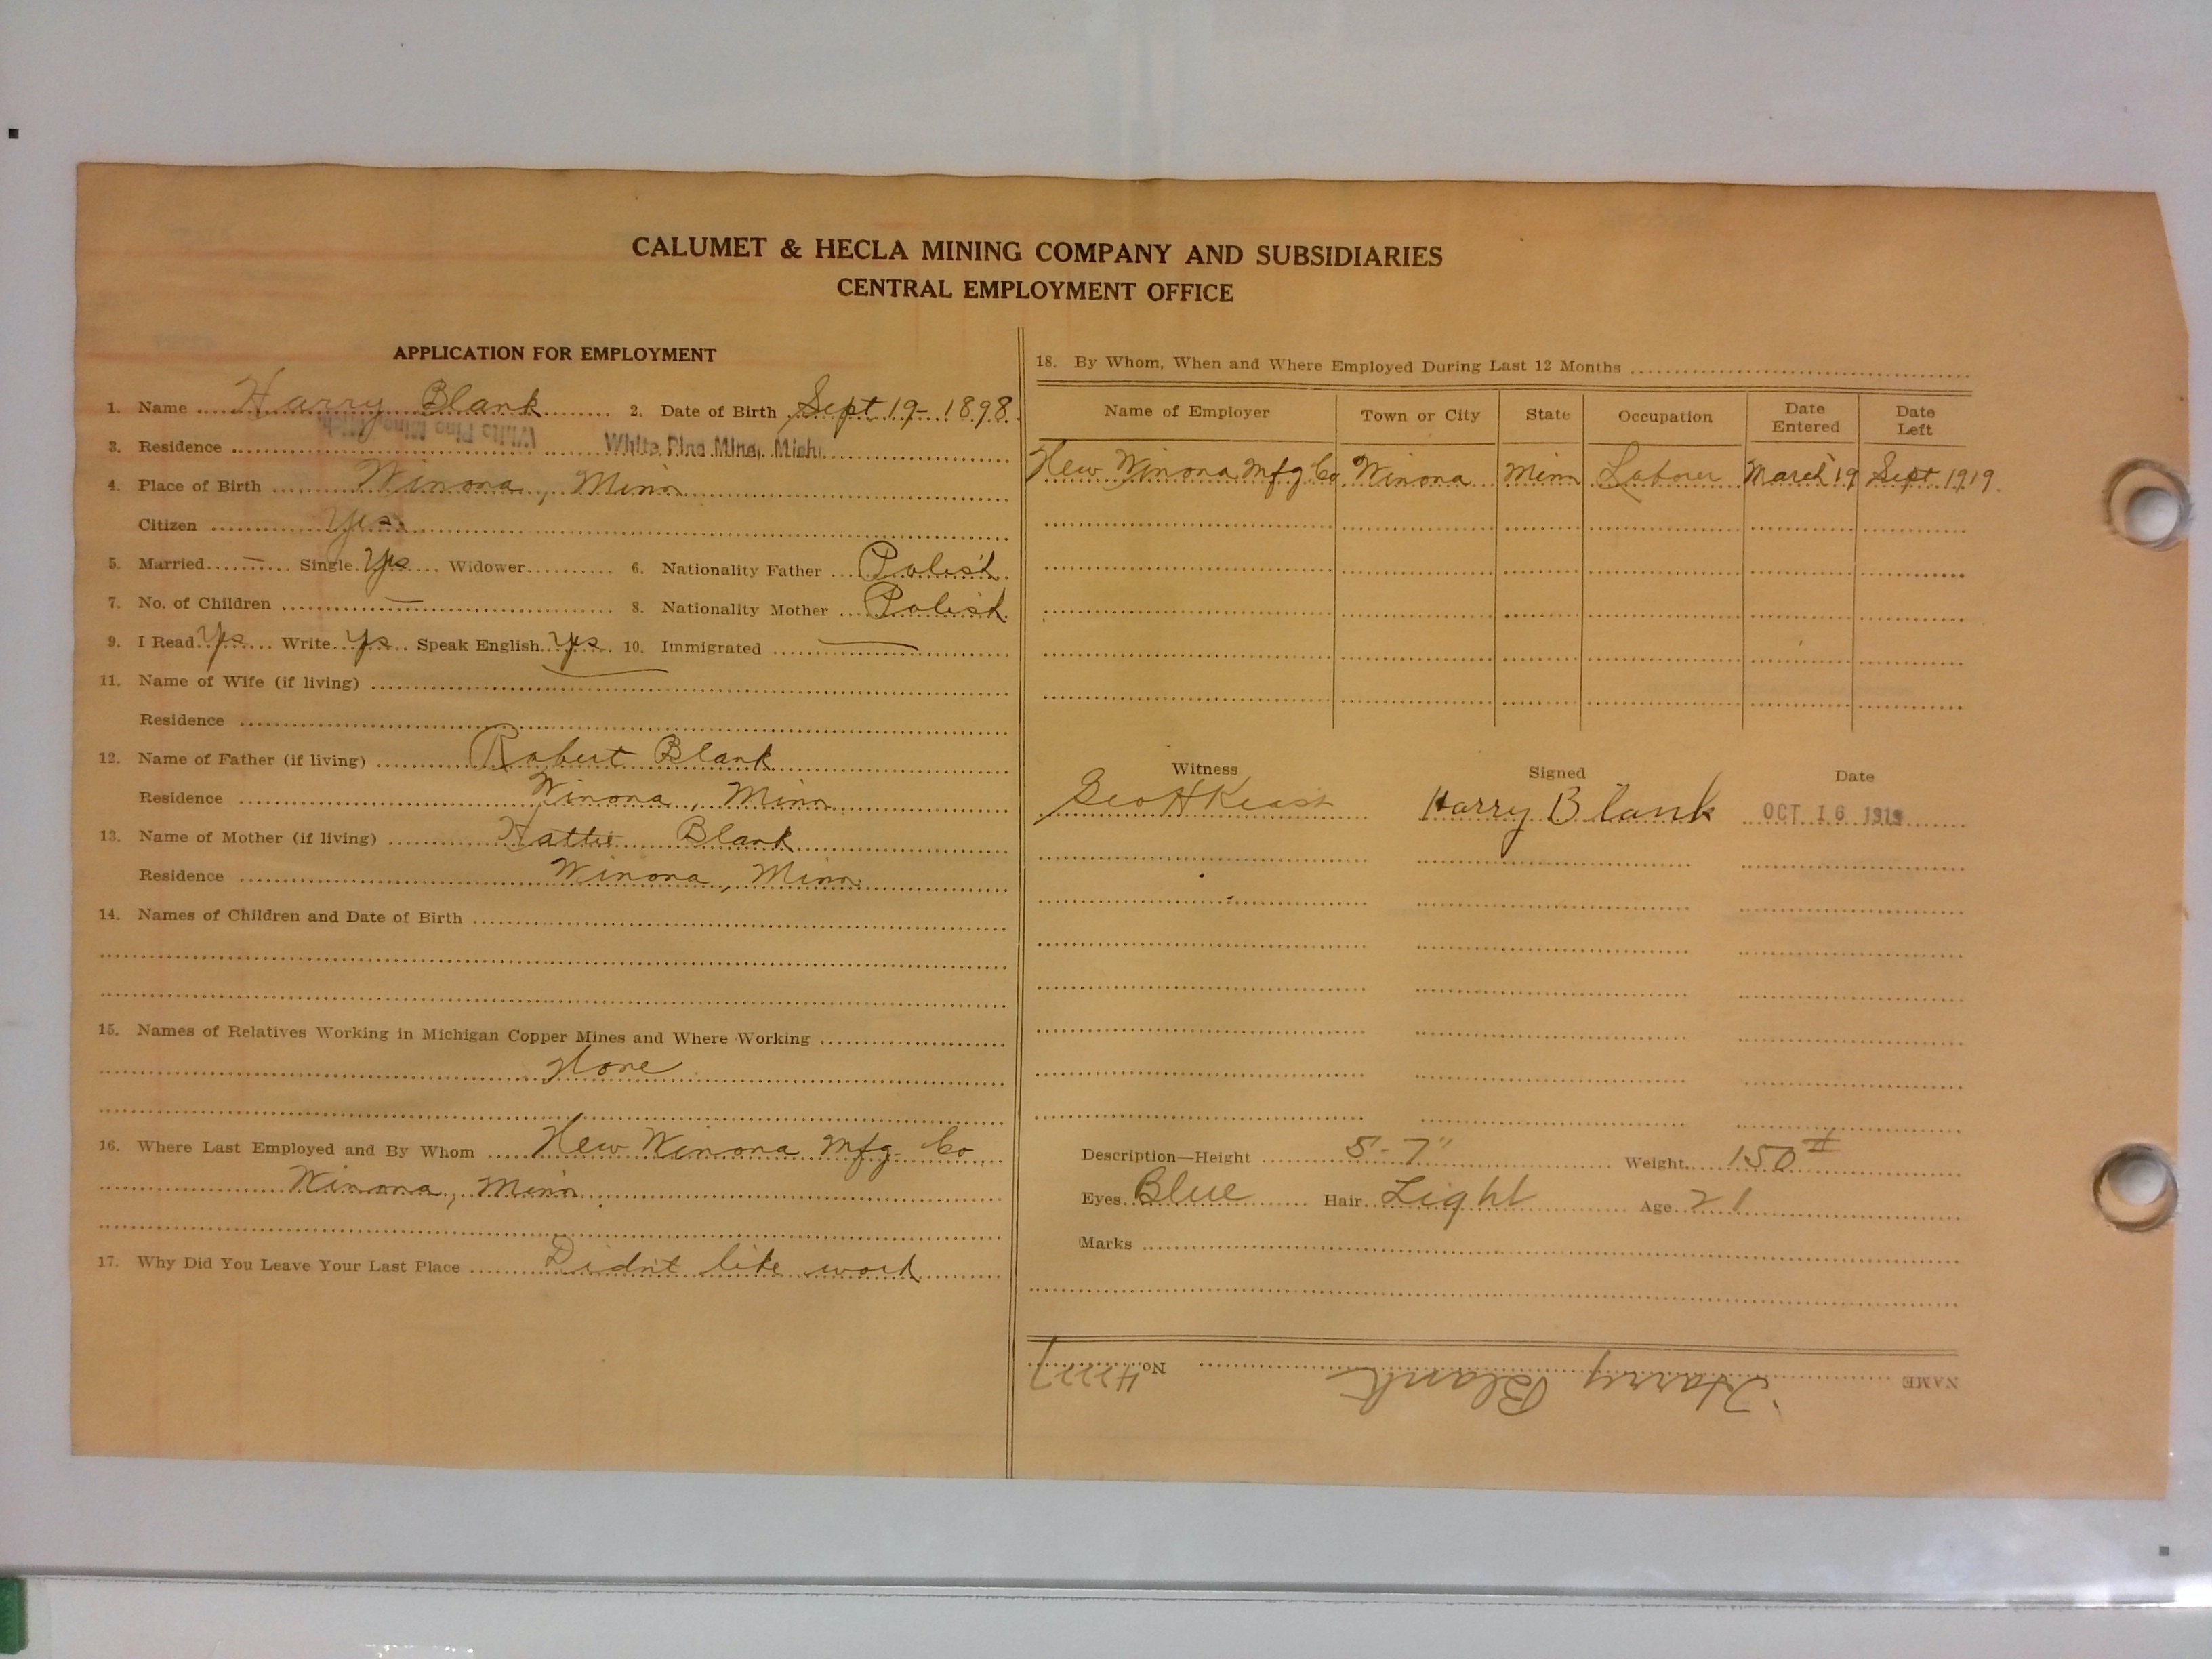 CALUMET & HECLA MINING COMPANY AND SUBSIDIARIES
CENTRAL EMPLOYMENT OFFICE
APPLICATION FOR EMPLOYMENT
1. Name Harry Blank 2. Date of Birth Sept 19-1898
White Pine Mine, Mich.
3. Residence White Pine Mine, Mich.
4. Place of Birth Winona, Minn
Citizen Yes
5. Married — Single Yes Widower 6. Nationality Father Polish
7. No. of Children — 8. Nationality Mother Polish
9. I Read Yes Write Yes Speak English Yes 10. Immigrated —
11. Name of Wife (if living) —
Residence
12. Name of Father (if living) Robert Blank
Residence Winona, Minn
13. Name of Mother (if living) Hattie Blank
Residence Winona, Minn
14. Names of Children and Date of Birth
15. Names of Relatives Working in Michigan Copper Mines and Where Working
None
16. Where Last Employed and By Whom New Winona Mfg. Co
Winona, Minn
17. Why Did You Leave Your Last Place Didn't like work
18. By Whom, When and Where Employed During Last 12 Months
Name of Employer Town or City State Occupation Date Entered Date Left
New Winona Mfg Co Winona Minn Laborer March 19 Sept 1919
Witness Signed Date
Geo H Keast Harry Blank OCT 16 1919
Description—Height 5-7" Weight 150#
Eyes Blue Hair Light Age 21
Marks
NAME Harry Blank No. 42227